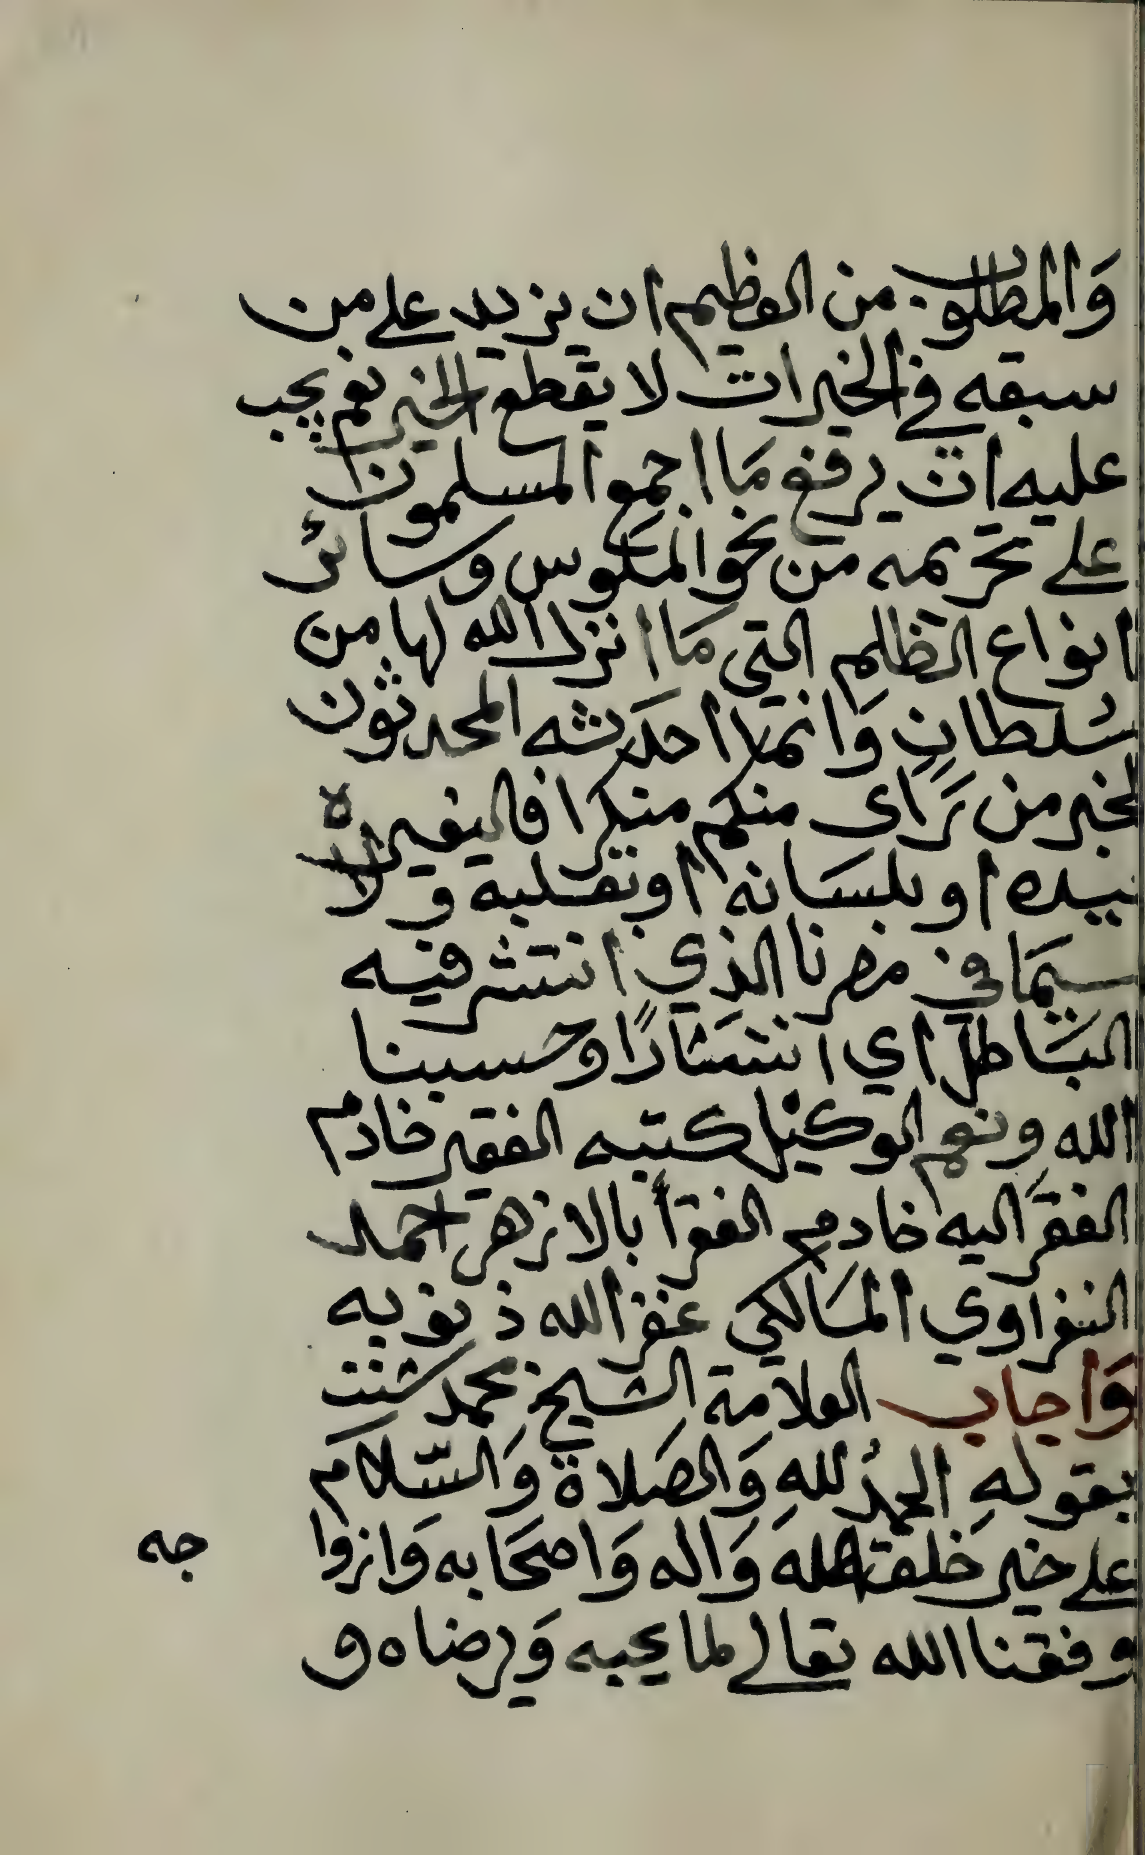 وَالمطلوب من العظيم ان يزيد على من
سبقه في الخيرات لا يقطع الخير نعم يجب
عليه ان يرفع مَا اجمع المسلمون
على تحريمه من نحو المكوس وسائر
انواع الظلم التي مَا انزل الله لها من
سُلطانٍ وَانما احدثه المحدثون
لخبر من رَاى منكم منكرا فاليغيره
بيده او بلسَانه او بقلبه ولا
سيمَا في مصرنا الذي انتشر فيه
البَاطل اي انتشَارًا وحسبنا
الله ونعم الوكيل كتبه الفقير خادم
الفقرَ اليه خادم الفقرأ بالازهر احمد
النفراوي المَالكي غفر الله ذنوبه
وَاجاب العلامة الشيخ محمد شنن
بقوله الحمدُ للهِ وَالصَلاة وَالسّلامَ
على خير خلقه وَاله وَاصحَابه وَازوا
وفقنا الله تعالى لما يحبه وَيرضاه و
جه